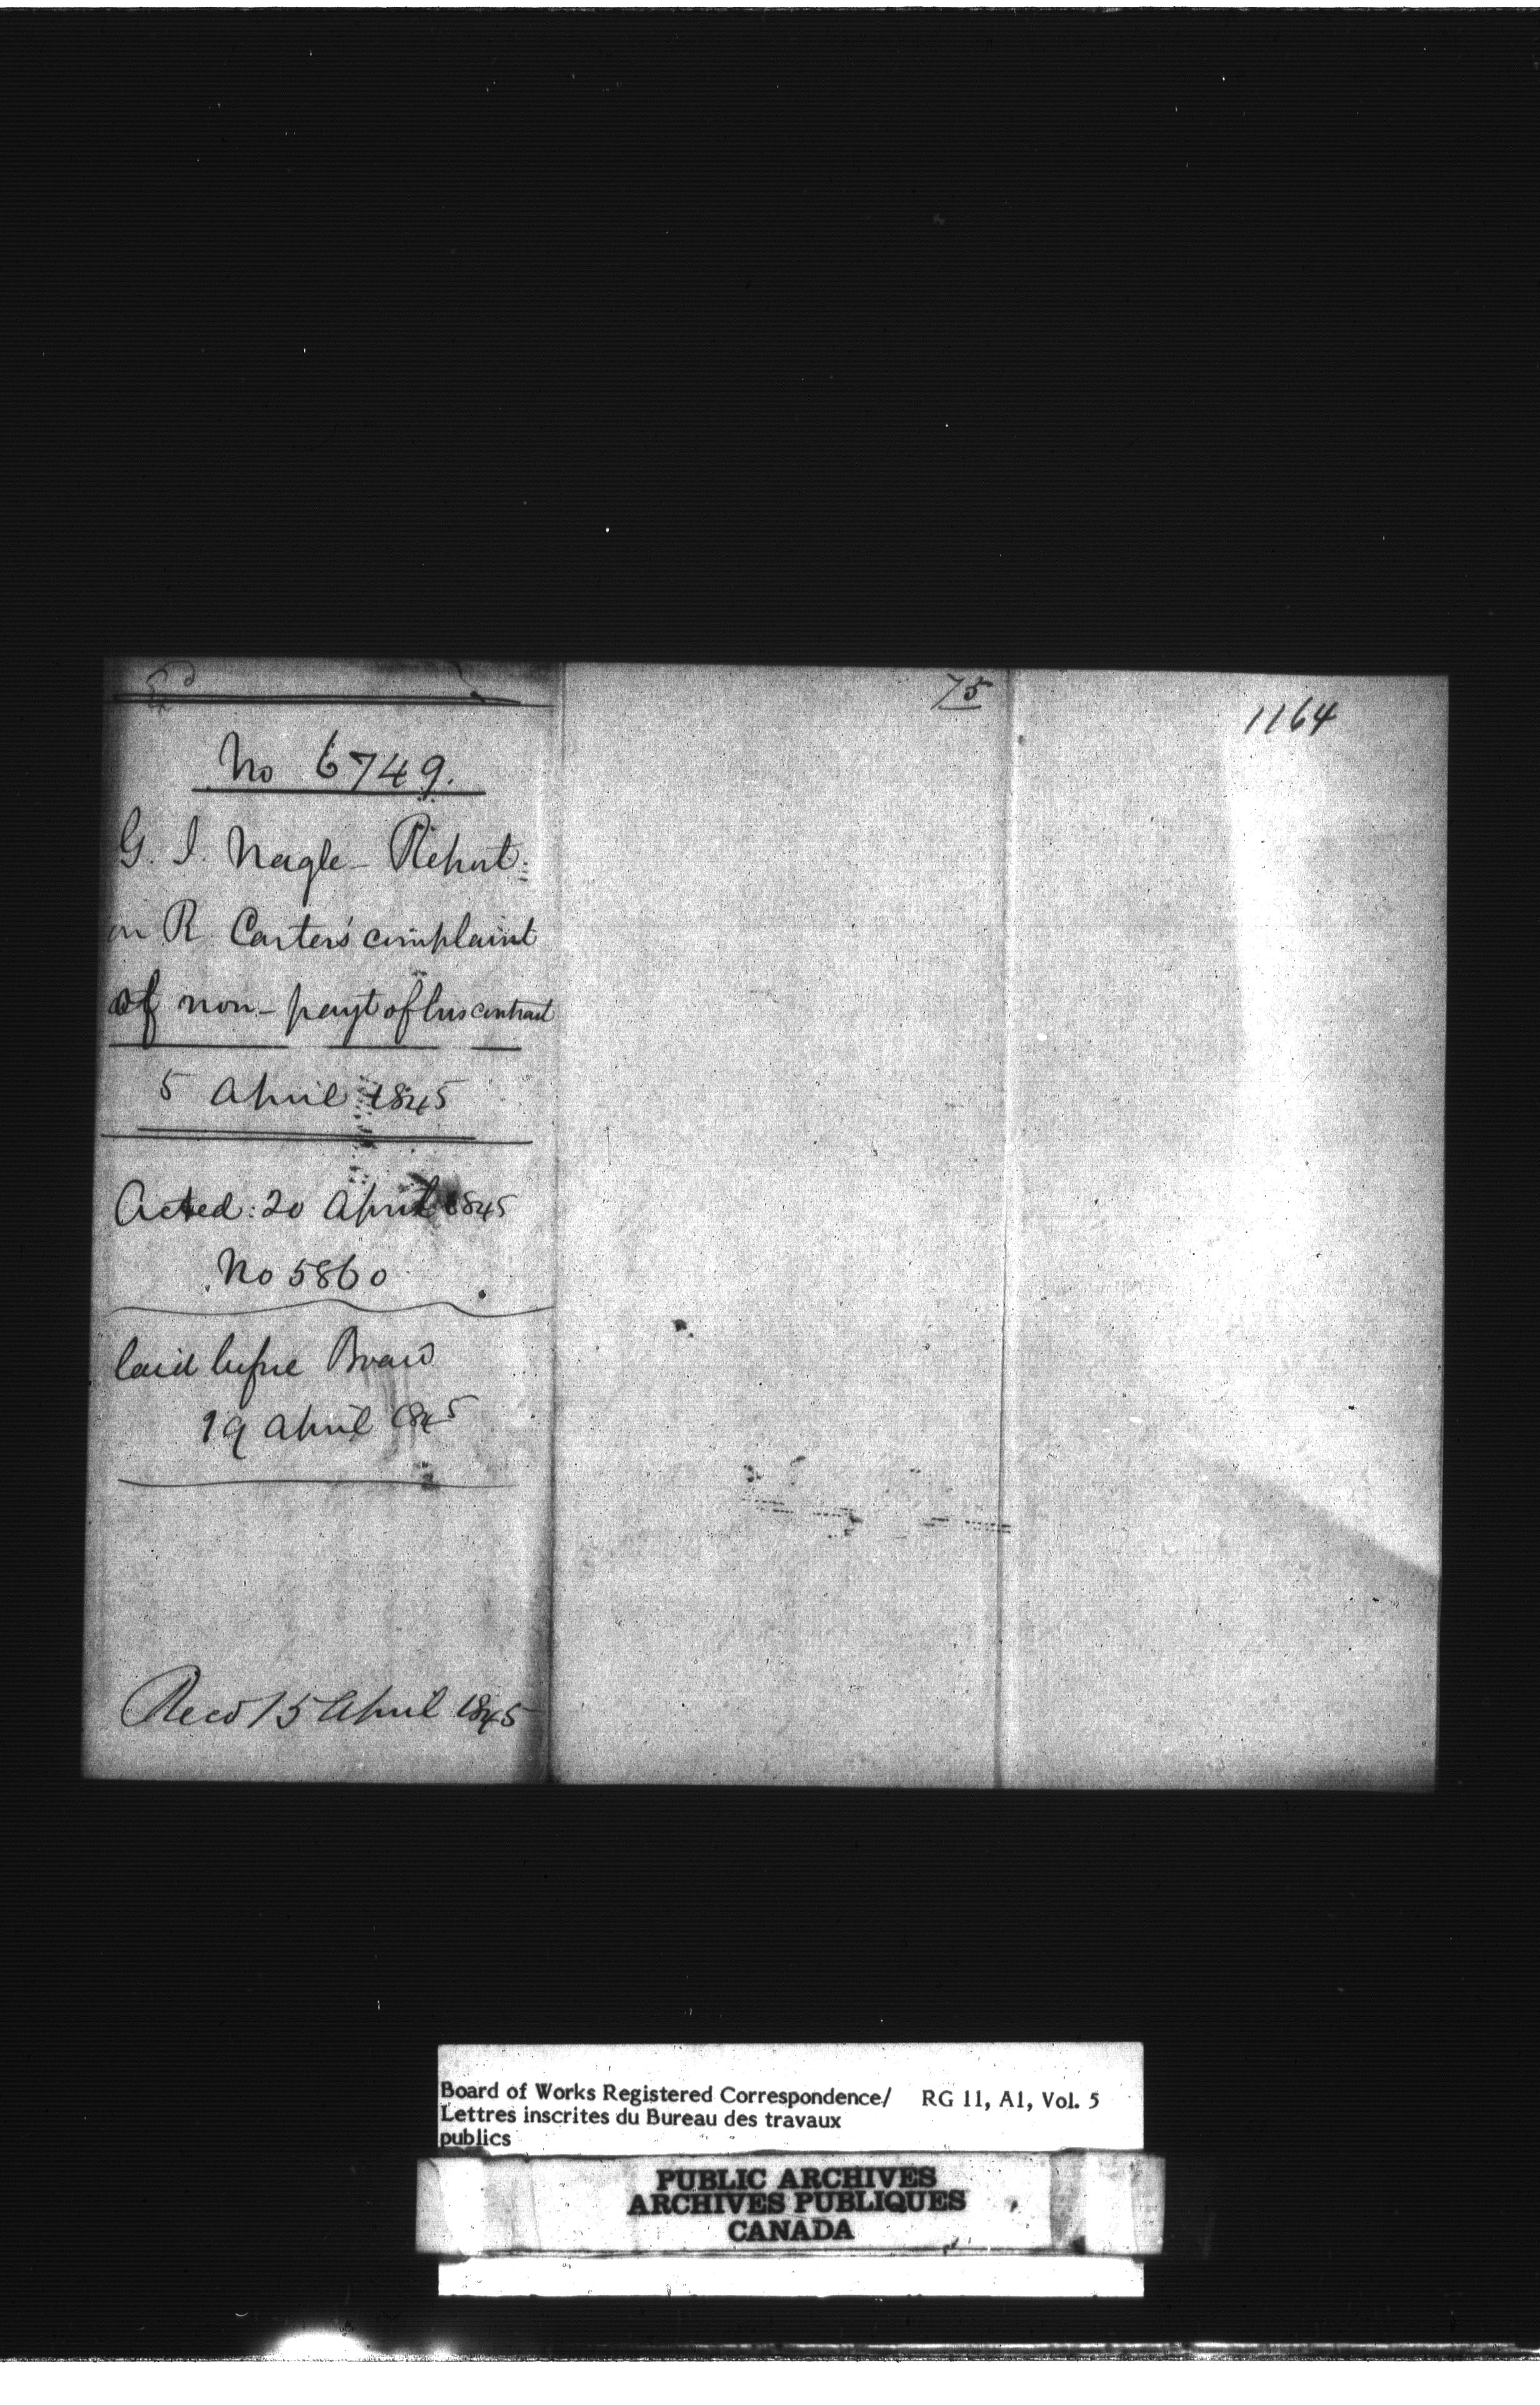 Ed
No 6749.
G. I. Nagle - Report
on R. Carter's complaint
of non-payt of his contract
5 April 1845
Acted: 20 April 1845
No 5860
laid before Board
19 April 1845
Recd 15 April 1845
75
1164
Board of Works Registered Correspondence/ RG 11, A1, Vol. 5
Lettres inscrites du Bureau des travaux
publics
PUBLIC ARCHIVES
ARCHIVES PUBLIQUES
CANADA